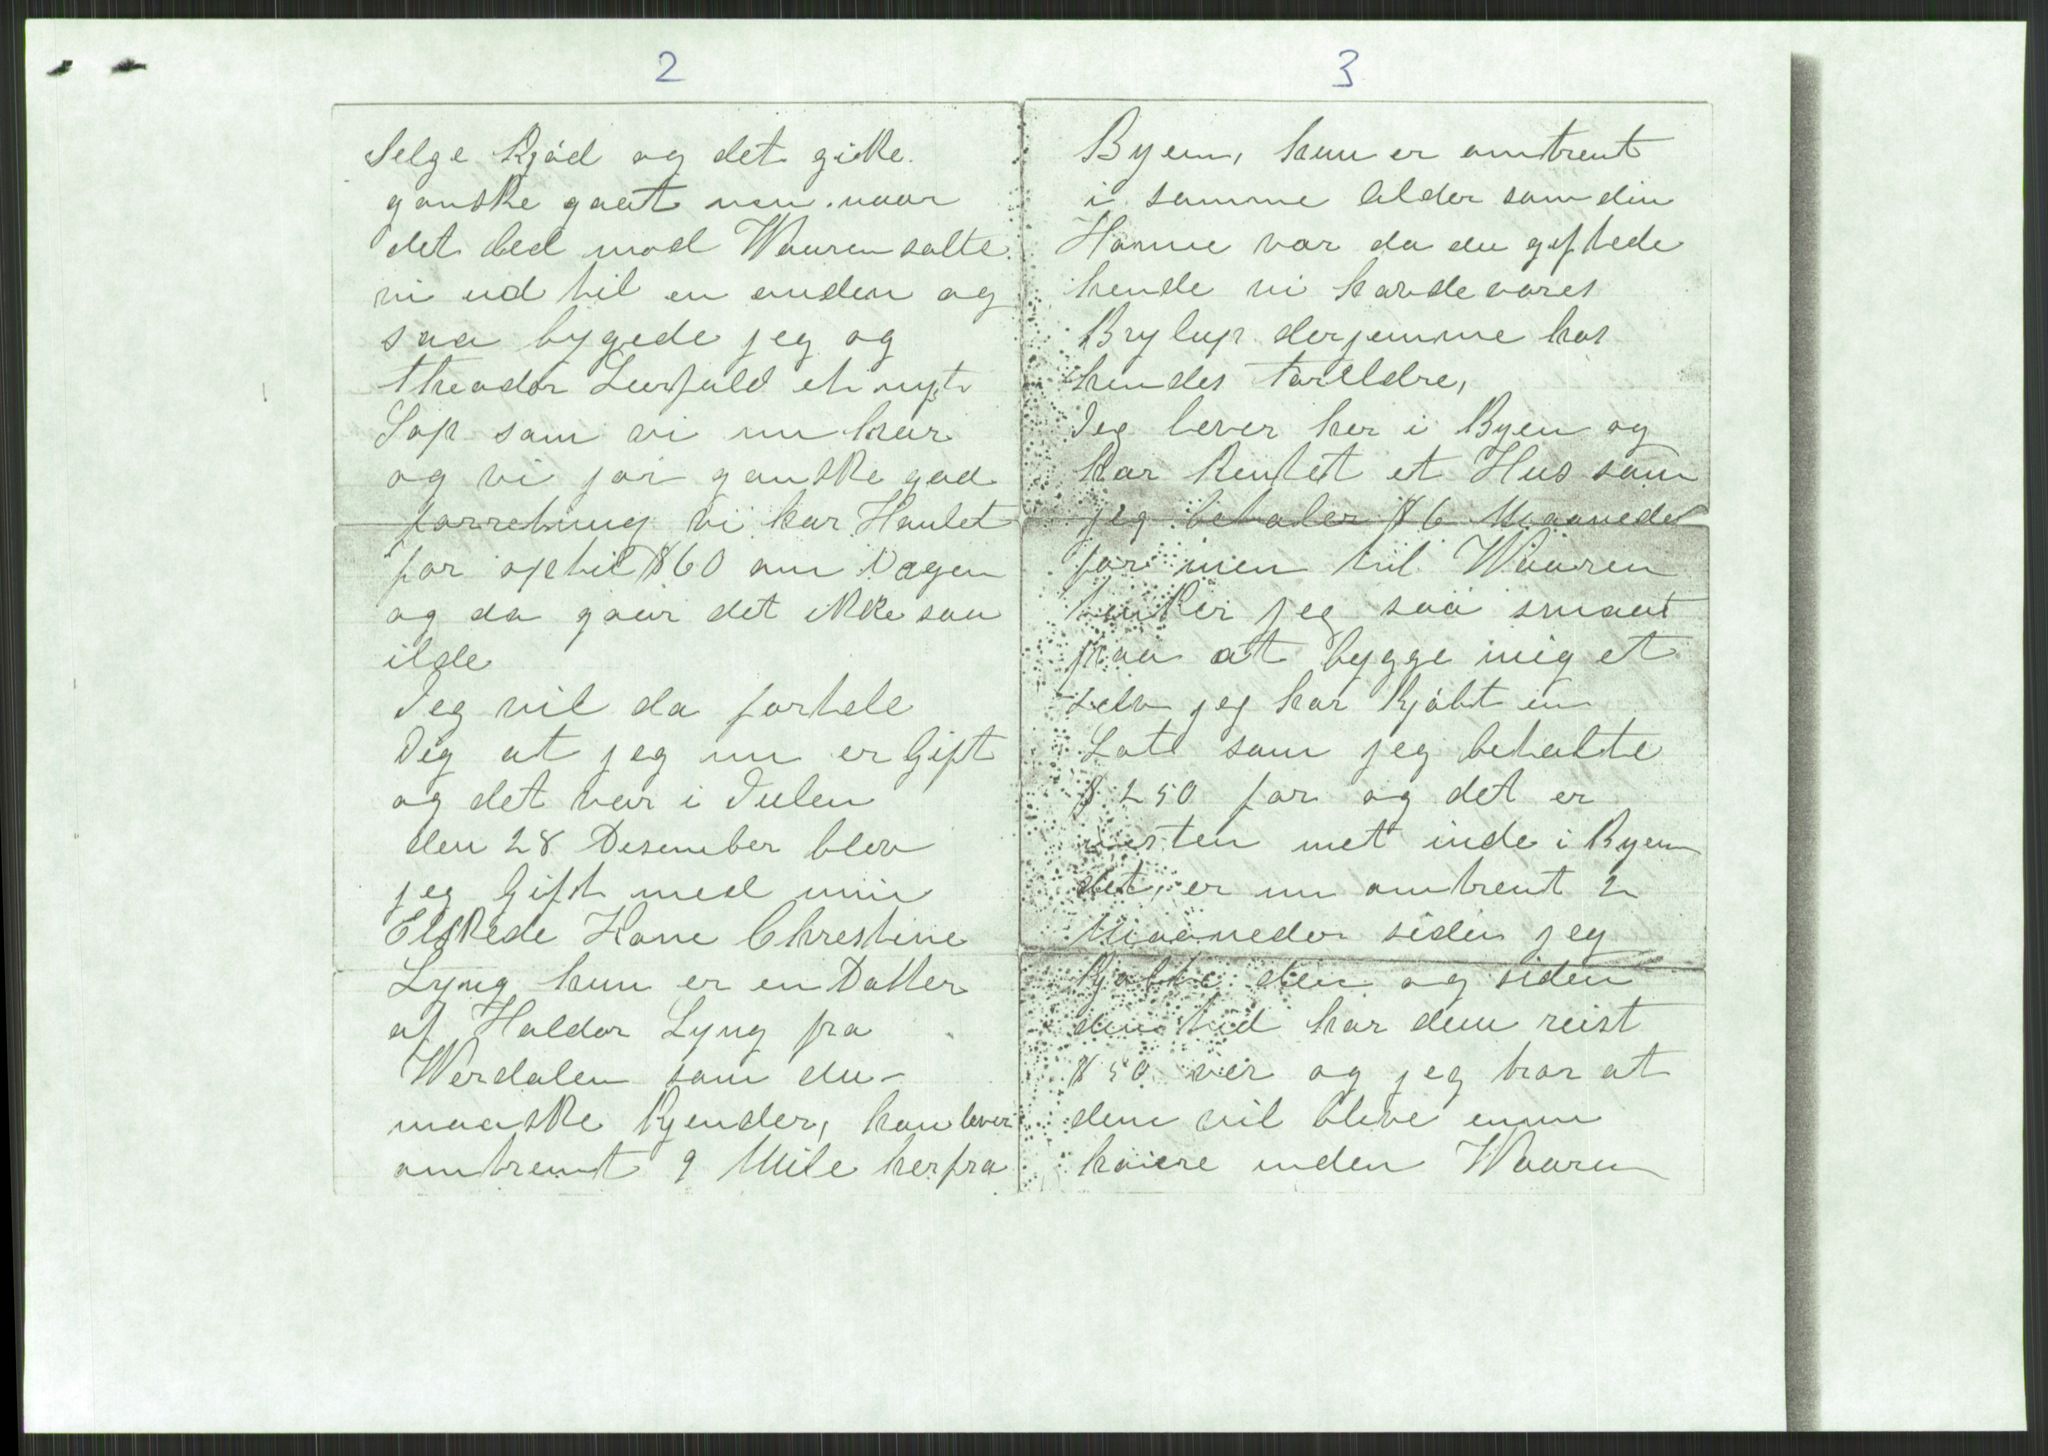 2
Selge Kjød og det gikke
ganske gaat men naar
det led mod Waaren solte
vi ud til en anden og
saa bygede jeg og
theodor Leerfald et nyt
Sop som vi nu har
og vi jør ganske god
forretning vi har Hanlet
for optil $60 om Dagen
og da gaar det ikke saa
ilde
Jeg vil da fortele
Dig at jeg nu er Gift
og det var i Julen
den 28 Desember blev
jeg Gift med min
Elskede Kone Christine
Lyng hun er en Datter
af Haldor Lyng fra
Werdalen som du
maaske Kjender, han lever
omtrent 9 Mile herfra
3
Byen, hun er omtrent
i samme Alder som din
Hanne var da du giftede
hende vi havde vores
Brylup derjemme hos
hendes Forældre,
Jeg lever her i Byen og
har Rentet et Hus som
jeg betaler $6 Maaneder
for men til Waaren
tenker jeg saa smaat
paa at bygge mig et
selv jeg har Kjøbt en
Lot som jeg betalte
$250 for og det er
nesten met inde i Byen
det er nu omtrent 2
Maaneder siden jeg
Kjøbte den og siden
den tid har dem reist
$50 ver og jeg tror at
dem vil bleve ennu
høiere inden Waaren